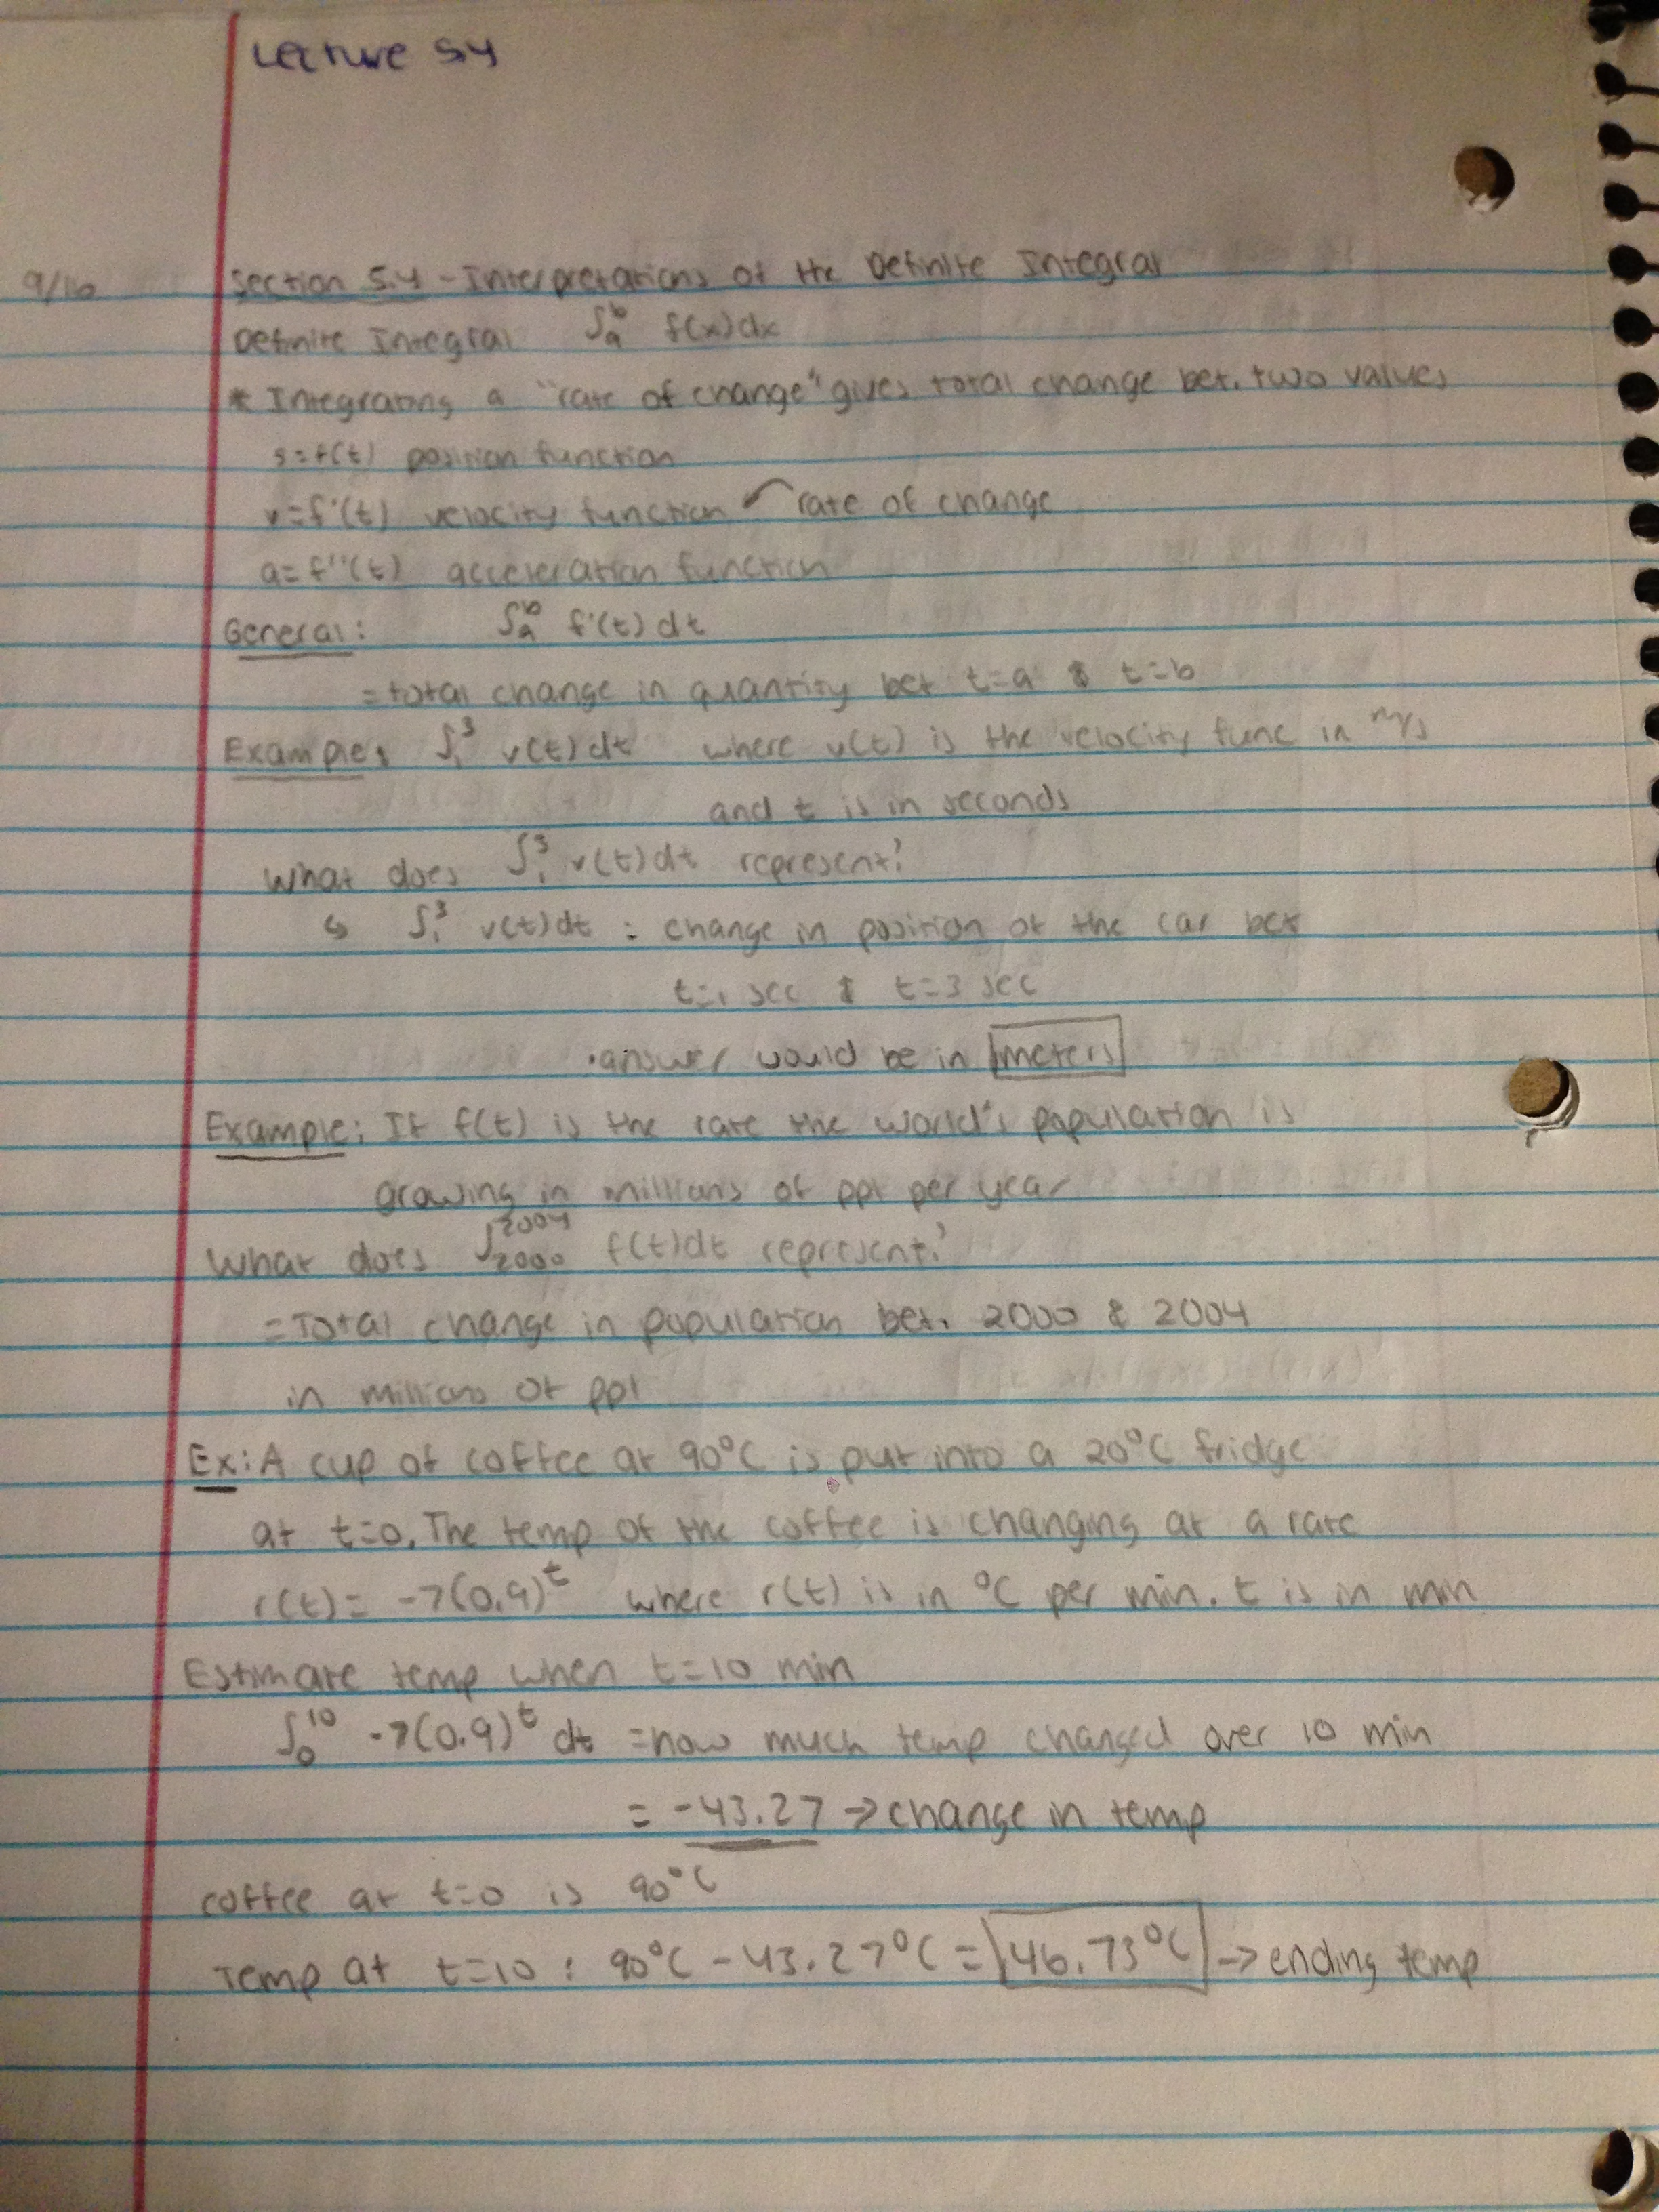 Lecture 5.4
9/16 Section 5.4 - Interpretations of the Definite Integral
Definite Integral ∫ₐᵇ f(x)dx
* Integrating a "rate of change" gives total change bet. two values
s=f(t) position function
v=f'(t) velocity function rate of change
a=f''(t) acceleration function
General: ∫ₐᵇ f'(t)dt
=total change in quantity bet t=a & t=b
Examples ∫₁³ v(t)dt where v(t) is the velocity func in m/s
and t is in seconds
What does ∫₁³ v(t)dt represent?
↳ ∫₁³ v(t)dt : change in position of the car bet
t=1 sec & t=3 sec
•answer would be in meters
Example: If f(t) is the rate the world's population is
growing in millions of ppl per year
What does ∫₂₀₀₀²⁰⁰⁴ f(t)dt represent?
=Total change in population bet. 2000 & 2004
in millions of ppl
Ex: A cup of coffee at 90°C is put into a 20°C fridge
at t=0. The temp of the coffee is changing at a rate
r(t)= -7(0.9)ᵗ where r(t) is in °C per min. t is in min
Estimate temp when t=10 min
∫₀¹⁰ -7(0.9)ᵗ dt =how much temp changed over 10 min
= -43.27 → change in temp
coffee at t=0 is 90°C
Temp at t=10 : 90°C - 43.27°C = 46.73°C → ending temp